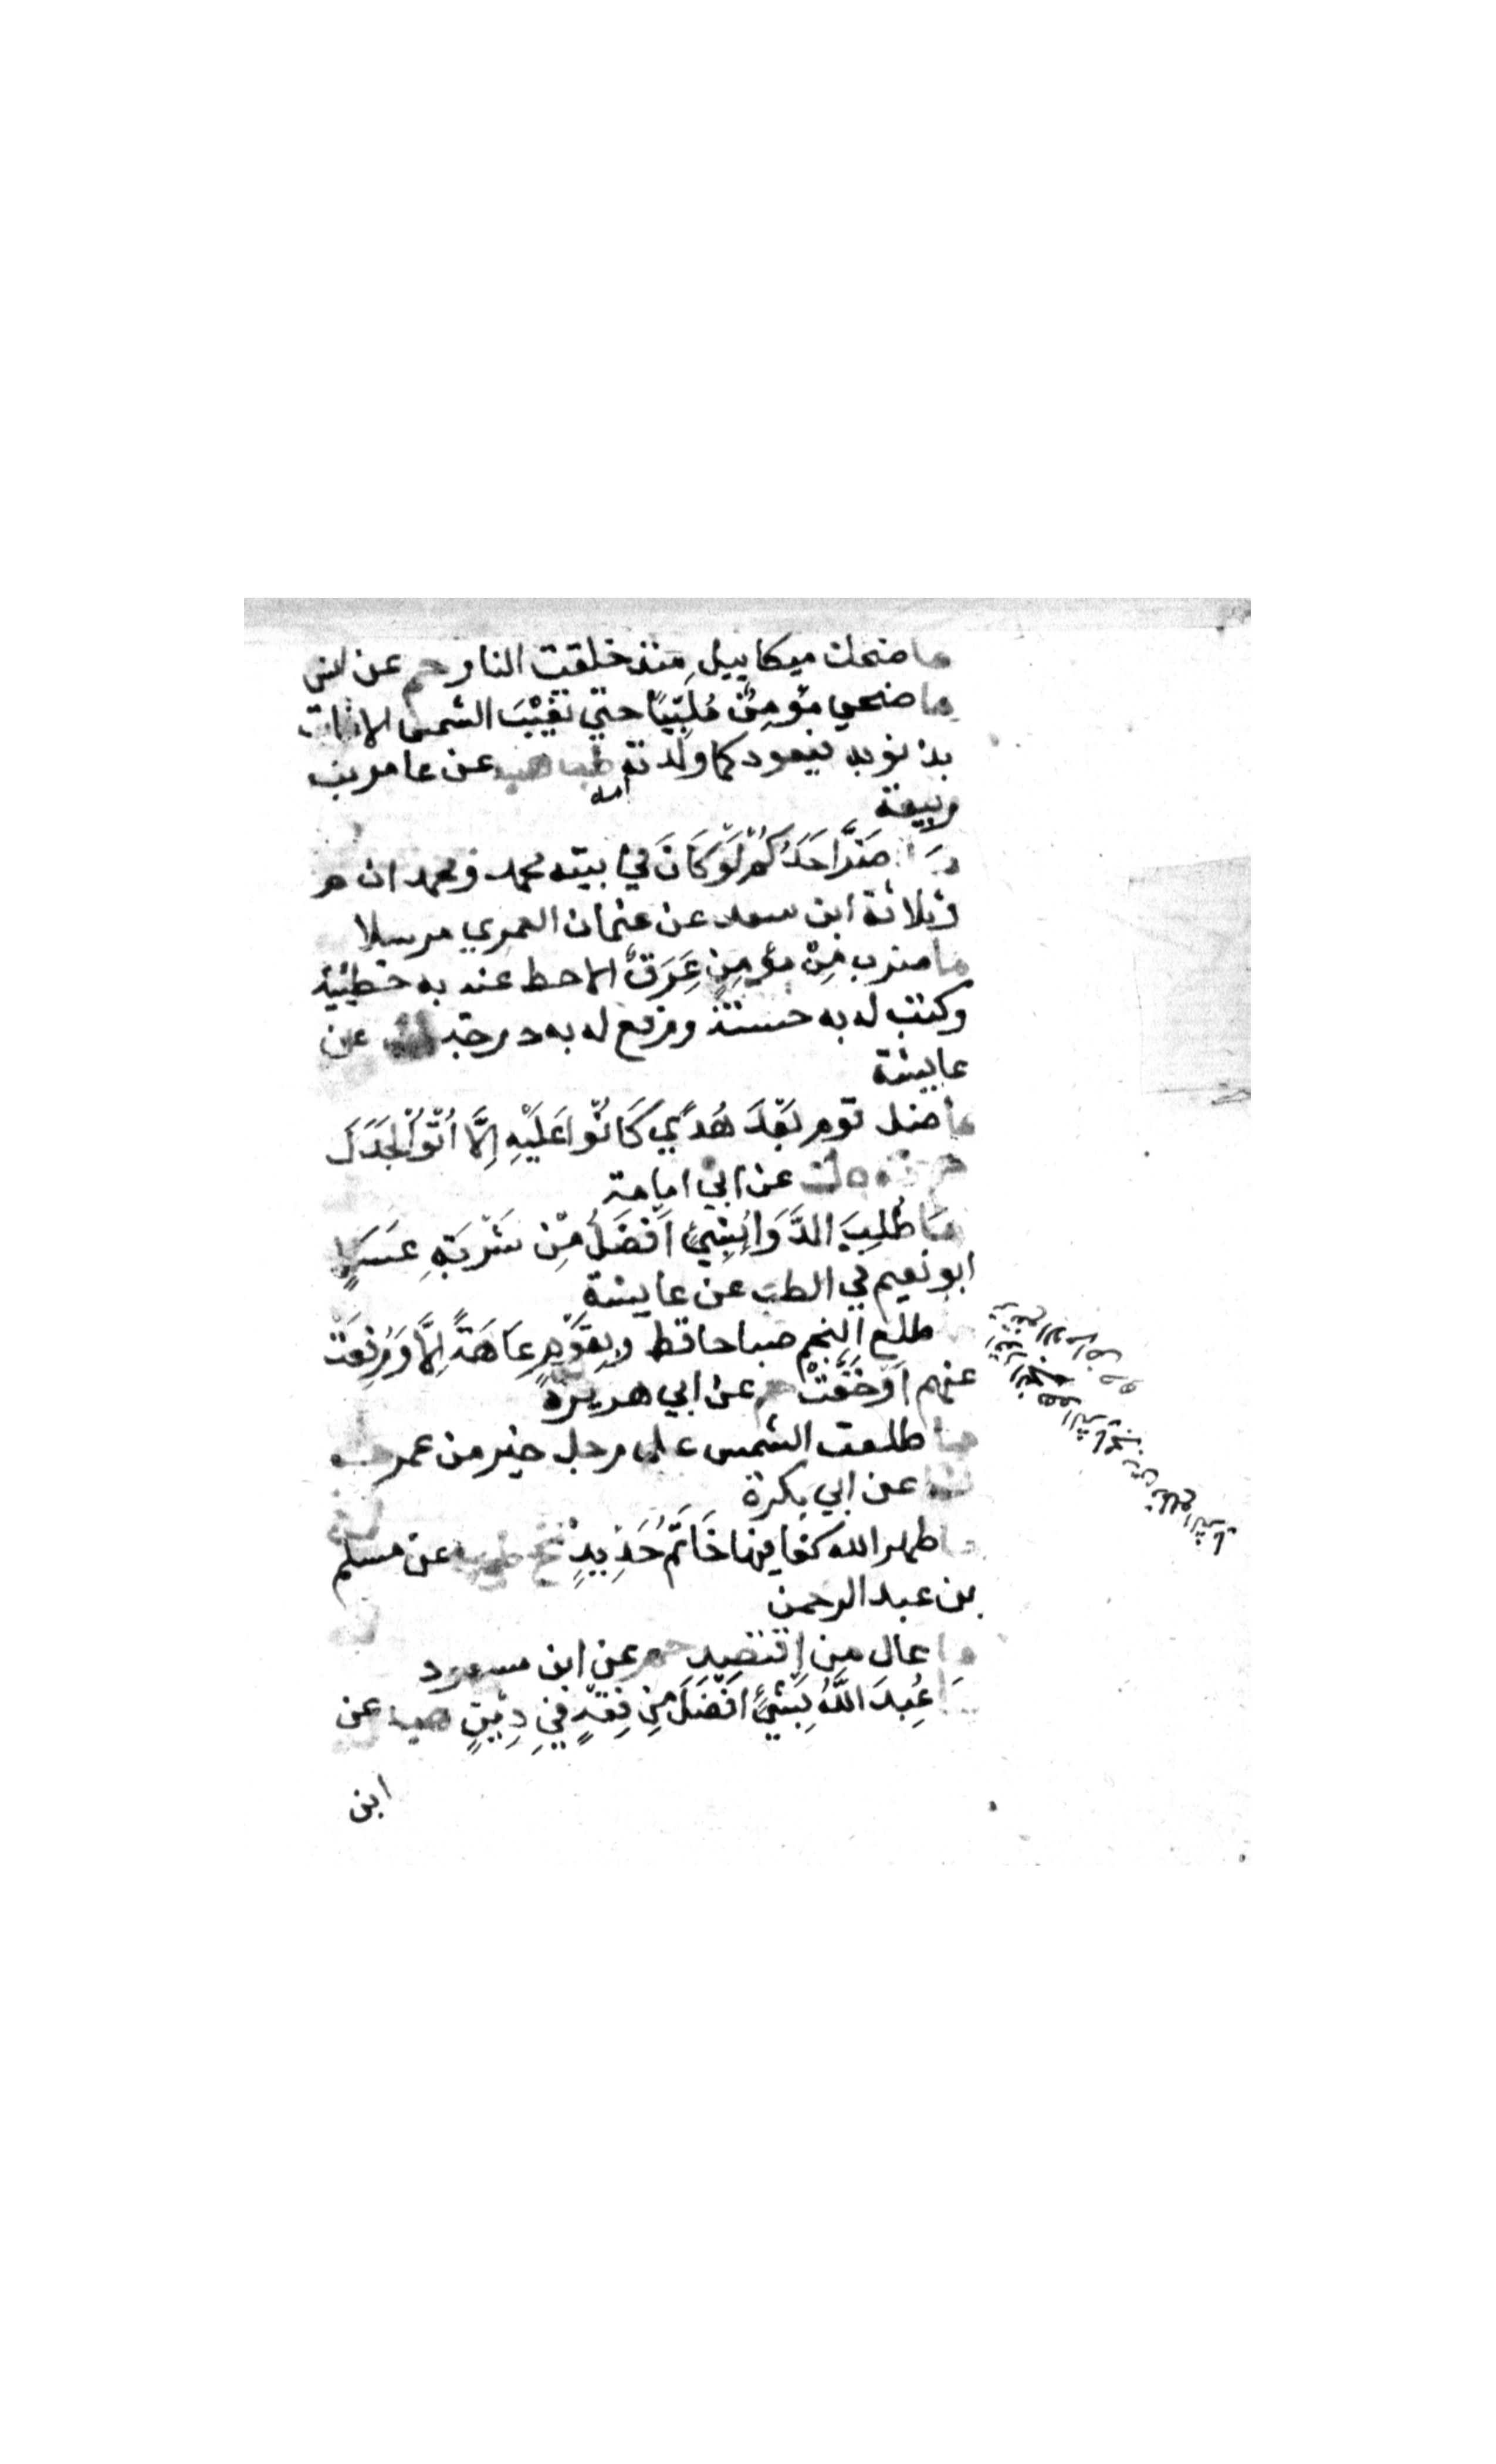 ما ضحك ميكاييل منذ خلقت النار حم عن انس
ما ضحي مؤمن ملبيا حتي تغيب الشمس الا غابت
بذنوبه فيعود كما ولدته امه طب هب عن عامر بن
ربيعة
ما ضَرَّ اَحَدَكُمْ لَوْ كَانَ فِي بيته محمد ومحمدان و
وثلاثة ابن سعد عن عثمان العمري مرسلا
ما ضرب مِنْ مؤمِنٍ عِرَقٌ الا حط عنه به خطيئة
وكتب له به حسنة ورفع له به درجة ك عن
عايشة
ما ضل قوم بَعْدَ هُدًي كَانُوْا عَلَيْهِ اِلَّا اُتُوْا الْجَدَلَ
حم ت ه ك عن ابي امامة
مَا طُلِبَ الدَّوَا بِشَيْءٍ اَفْضَلُ مِنْ شَرْبَةِ عَسَلٍ
ابو نعيم في الطب عن عايشة
طلع النجم صباحا قط وبِقَوْمٍ عَاهَةٌ اِلَّا وَرُفِعَتْ
عنهم اَوْ خَفَّتْ حم عن ابي هريرة
ما طلعت الشمس علي رجل خير من عمر ت
ك عن ابي بكرة
ما طهر الله كفا فيها خَاتَمُ حَدِيدٍ تخ طب عن مسلم
بن عبد الرحمن
ما عال من اقتصد حم عن ابن مسعود
مَا عُبِدَ اللَّهُ بِشَيْءٍ اَفْضَلَ مِن فِقْهٍ فِي دِيْنٍ هب عن
ابن